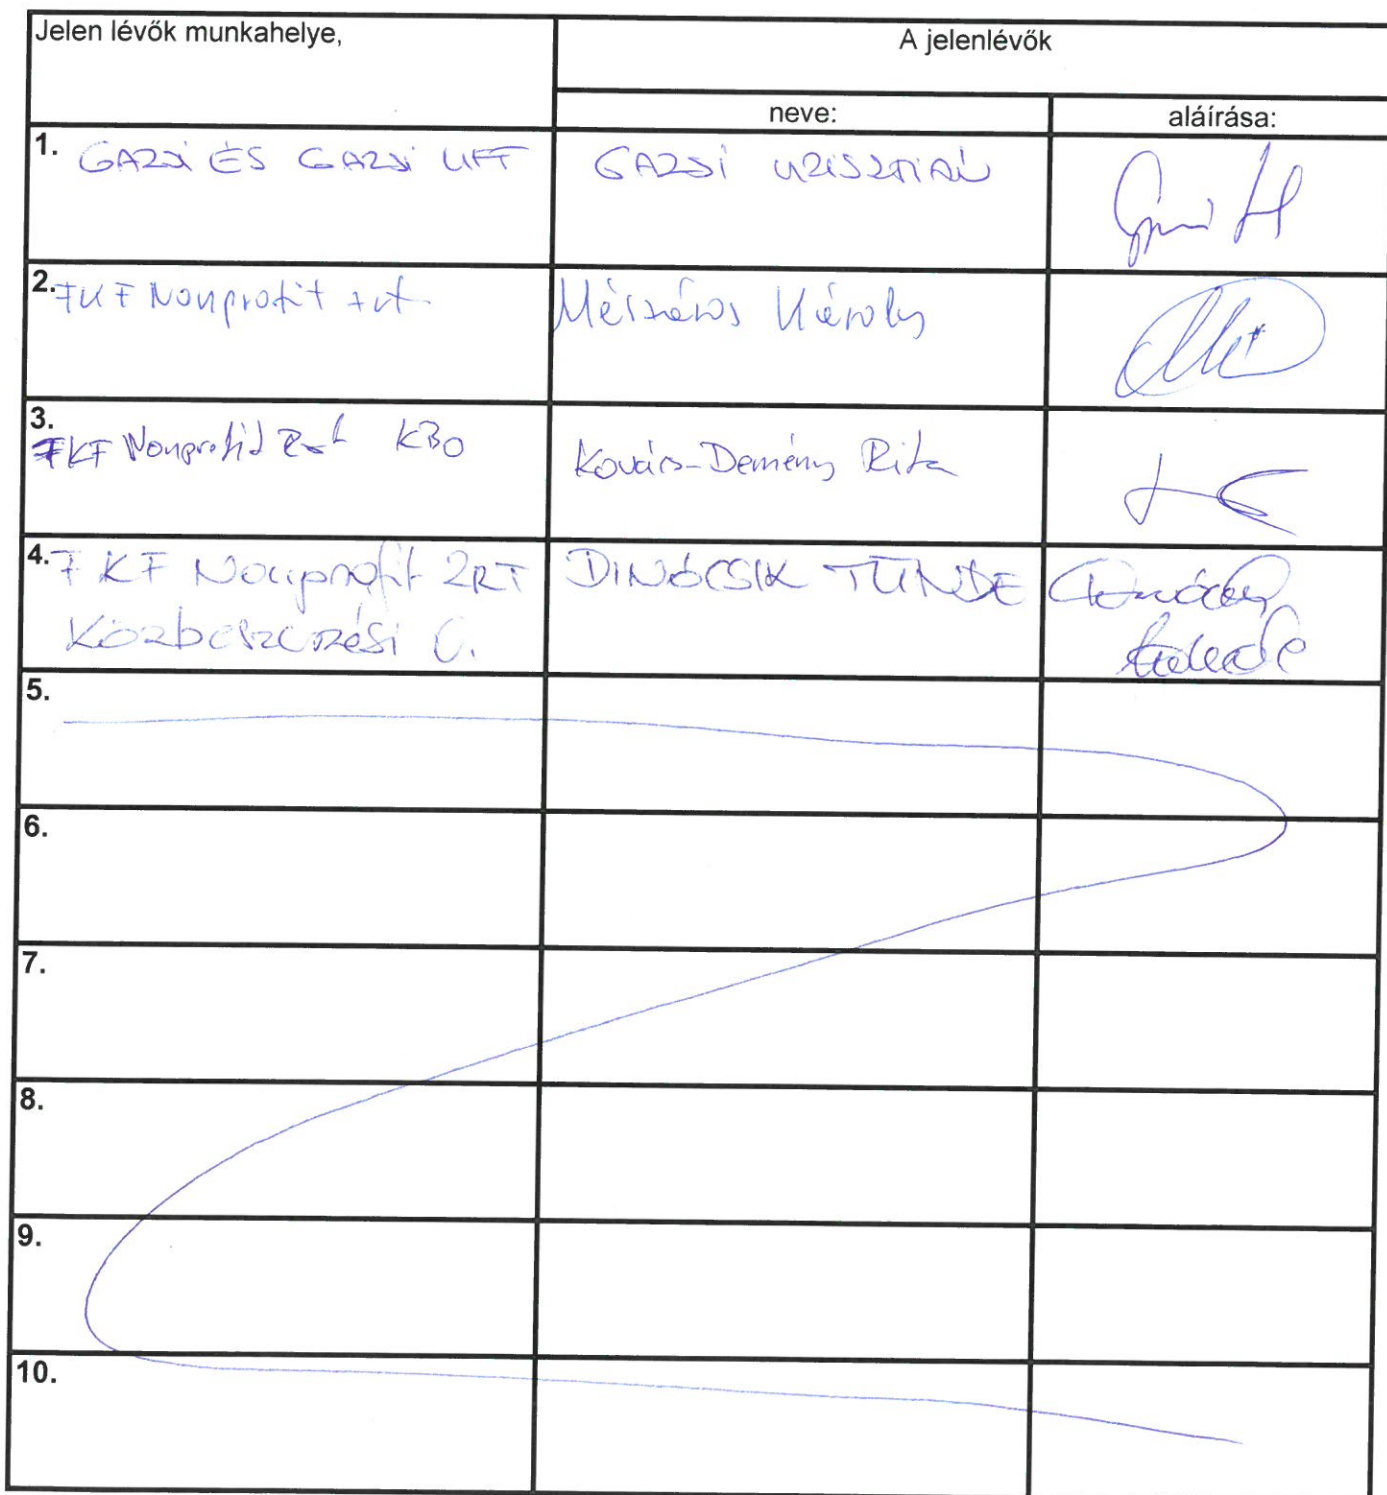 Jelen lévők munkahelye,
A jelenlévők
neve:
aláírása:
1. GAZSI ÉS GAZSI KFT
GAZSI KRISZTIÁN
2. FKF Nonprofit zrt.
Mészáros Károly
3. FKF Nonprofit Zrt KBO
Kovács-Demény Rita
4. FKF Nonprofit ZRT
Közbeszerzési O.
DINÓCSIK TÜNDE
5.
6.
7.
8.
9.
10.